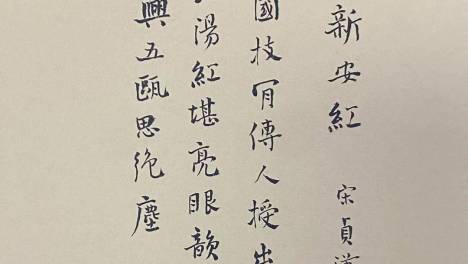 新安紅 宋貞
國技肎傳人授出
湯紅堪亮眼韻
興五甌思絶塵